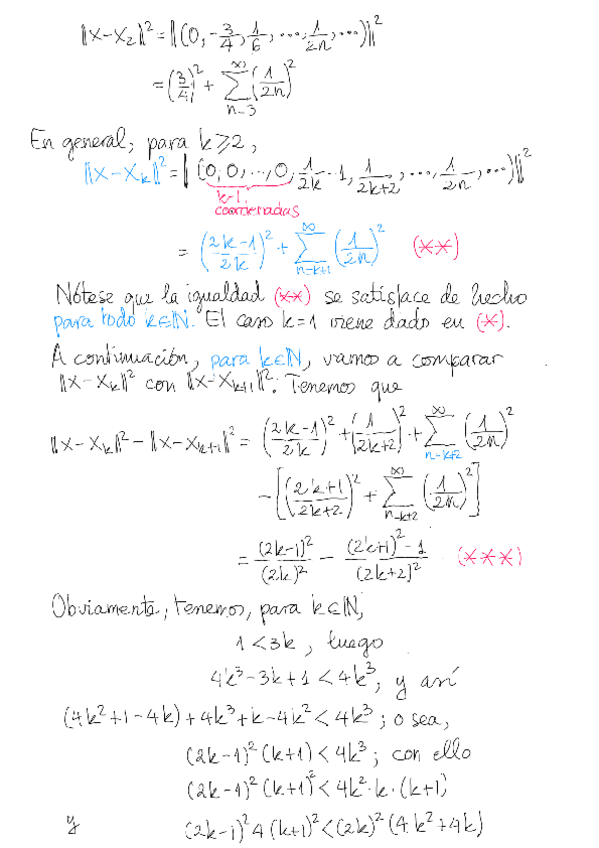 ‖x-x₂‖² = ‖(0, -3/4, 1/6, ..., 1/2n, ...)‖²
= (3/4)² + ∑_{n=3}^{∞} (1/2n)²
En general, para k⩾2,
‖x-x_k‖² = ‖(0, 0, ..., 0, 1/2k - 1, 1/2k+2, ..., 1/2n, ...)‖²
k-1
coordenadas
= (2k-1/2k)² + ∑_{n=k+1}^{∞} (1/2n)² (**)
Nótese que la igualdad (**) se satisface de hecho
para todo k∈ℕ. El caso k=1 viene dado en (*).
A continuación, para k∈ℕ, vamos a comparar
‖x-x_k‖² con ‖x-x_{k+1}‖². Tenemos que
‖x-x_k‖² - ‖x-x_{k+1}‖² = (2k-1/2k)² + (1/2k+2)² + ∑_{n=k+2}^{∞} (1/2n)²
- [(2k+1/2k+2)² + ∑_{n=k+2}^{∞} (1/2n)²]
= (2k-1)²/(2k)² - (2k+1)²-1/(2k+2)² (***)
Obviamente, tenemos, para k∈ℕ,
1 < 3k, luego
4k³-3k+1 < 4k³, y así
(4k²+1-4k)+4k³+k-4k² < 4k³; o sea,
(2k-1)²(k+1) < 4k³; con ello
(2k-1)²(k+1)² < 4k²·k·(k+1)
y (2k-1)²4(k+1)² < (2k)²(4k²+4k)